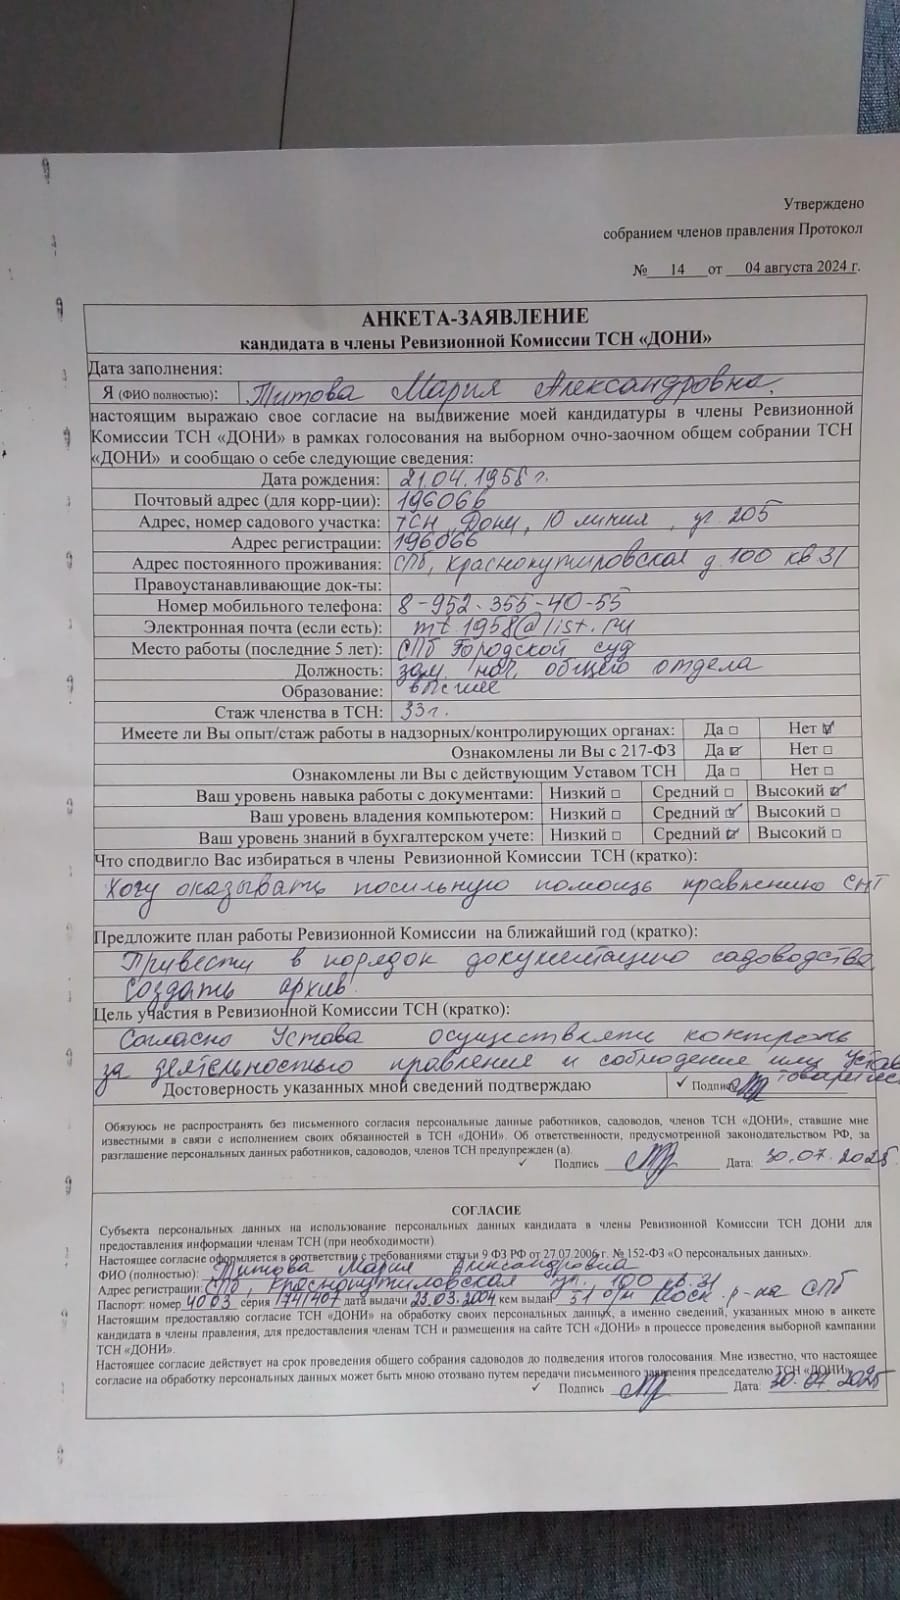 Утверждено
собранием членов правления Протокол
№ 14 от 04 августа 2024 г.
АНКЕТА-ЗАЯВЛЕНИЕ
кандидата в члены Ревизионной Комиссии ТСН «ДОНИ»
Дата заполнения:
Я (ФИО полностью): Титова Мария Александровна,
настоящим выражаю свое согласие на выдвижение моей кандидатуры в члены Ревизионной
Комиссии ТСН «ДОНИ» в рамках голосования на выборном очно-заочном общем собрании ТСН
«ДОНИ» и сообщаю о себе следующие сведения:
Дата рождения: 21.04.1958 г.
Почтовый адрес (для корр-ции): 196066
Адрес, номер садового участка: ТСН "Дони", 10 линия, уч. 205
Адрес регистрации: 196066
Адрес постоянного проживания: СПб, Краснопутиловская д. 100 кв 31
Правоустанавливающие док-ты:
Номер мобильного телефона: 8-952-355-40-55
Электронная почта (если есть): mt.1958@list.ru
Место работы (последние 5 лет): СПб Городской суд
Должность: зам. нач. общего отдела
Образование: высшее
Стаж членства в ТСН: 33 г.
Имеете ли Вы опыт/стаж работы в надзорных/контролирующих органах: Да □ Нет ☑
Ознакомлены ли Вы с 217-ФЗ Да ☑ Нет □
Ознакомлены ли Вы с действующим Уставом ТСН Да □ Нет □
Ваш уровень навыка работы с документами: Низкий □ Средний □ Высокий ☑
Ваш уровень владения компьютером: Низкий □ Средний ☑ Высокий □
Ваш уровень знаний в бухгалтерском учете: Низкий □ Средний ☑ Высокий □
Что сподвигло Вас избираться в члены Ревизионной Комиссии ТСН (кратко):
Хочу оказывать посильную помощь правлению СНТ
Предложите план работы Ревизионной Комиссии на ближайший год (кратко):
Привести в порядок документацию садоводства,
создать архив.
Цель участия в Ревизионной Комиссии ТСН (кратко):
Согласно Устава осуществлять контроль
за деятельностью правления и соблюдение ими Устав
Достоверность указанных мной сведений подтверждаю ✓ Подпись
Обязуюсь не распространять без письменного согласия персональные данные работников, садоводов, членов ТСН «ДОНИ», ставшие мне
известными в связи с исполнением своих обязанностей в ТСН «ДОНИ». Об ответственности, предусмотренной законодательством РФ, за
разглашение персональных данных работников, садоводов, членов ТСН предупрежден (а).
✓ Подпись Дата: 30.07.2025
СОГЛАСИЕ
Субъекта персональных данных на использование персональных данных кандидата в члены Ревизионной Комиссии ТСН ДОНИ для
предоставления информации членам ТСН (при необходимости).
Настоящее согласие оформляется в соответствии с требованиями статьи 9 ФЗ РФ от 27.07.2006 г. № 152-ФЗ «О персональных данных».
ФИО (полностью): Титова Мария Александровна
Адрес регистрации: СПб, Краснопутиловская ул. 100 кв. 31
Паспорт: номер 4003 серия 1741407 дата выдачи 23.03.2004 кем выдан 51 о/м Моск. р-на СПб
Настоящим предоставляю согласие ТСН «ДОНИ» на обработку своих персональных данных, а именно сведений, указанных мною в анкете
кандидата в члены правления, для предоставления членам ТСН и размещения на сайте ТСН «ДОНИ» в процессе проведения выборной кампании
ТСН «ДОНИ».
Настоящее согласие действует на срок проведения общего собрания садоводов до подведения итогов голосования. Мне известно, что настоящее
согласие на обработку персональных данных может быть мною отозвано путем передачи письменного заявления председателю ТСН «ДОНИ».
✓ Подпись Дата: 30.07.2025